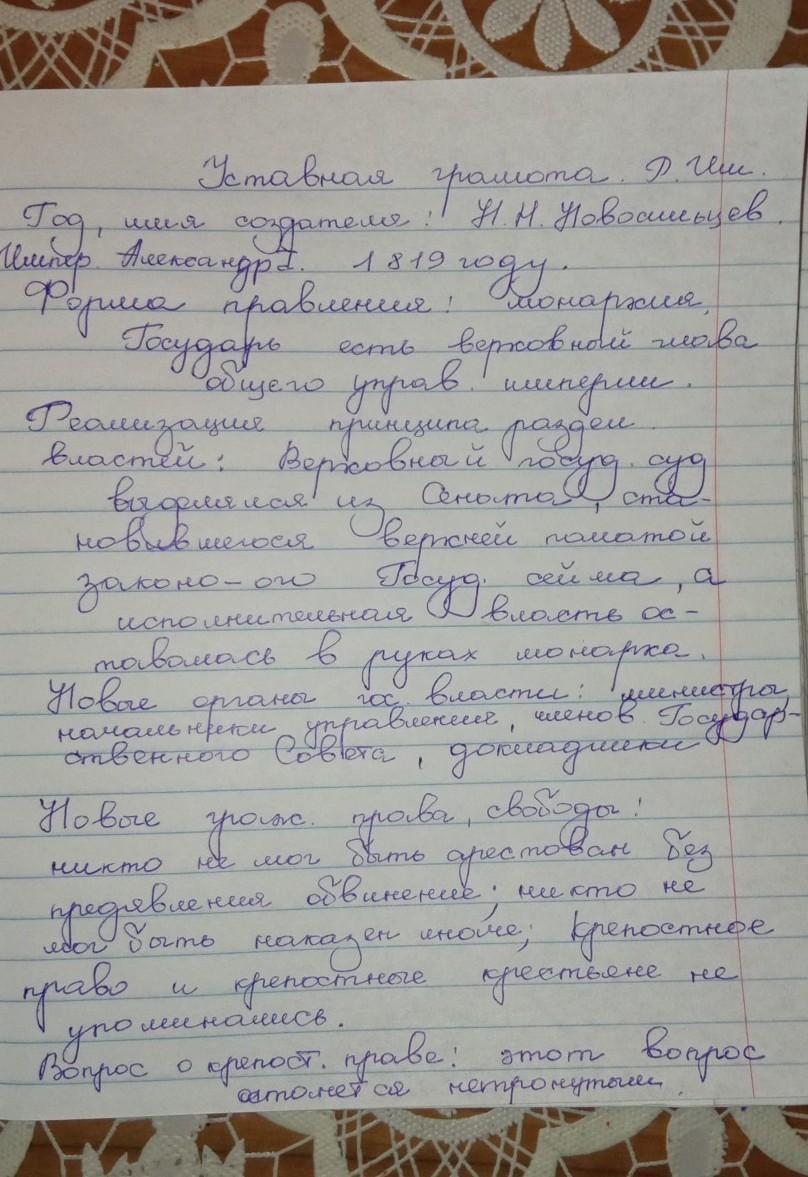 Уставная грамота. Р. Им.
Год, имя создателя: Н.Н. Новосильцев.
Импер. Александр I. 1819 году.
Форма правления: монархия,
Государь есть верховный глава
общего управ. империи.
Реализация принципа раздел.
властей: Верховный госуд. суд
выделялся из Сената, ста-
новившегося верхней палатой
законо-ого Госуд. сейма, а
исполнительная власть ос-
тавалась в руках монарха.
Новые органы гос. власти: министры,
начальники управление, членов Государ-
ственного Совета, докладшики
Новые граж. права, свободы:
никто не мог быть арестован без
предявления обвинение; никто не
мог быть наказен иноче; Крепостное
право и крепостные крестьяне не
упоминались.
Вопрос о крепост. праве: этот вопрос
остонется нетронутым.